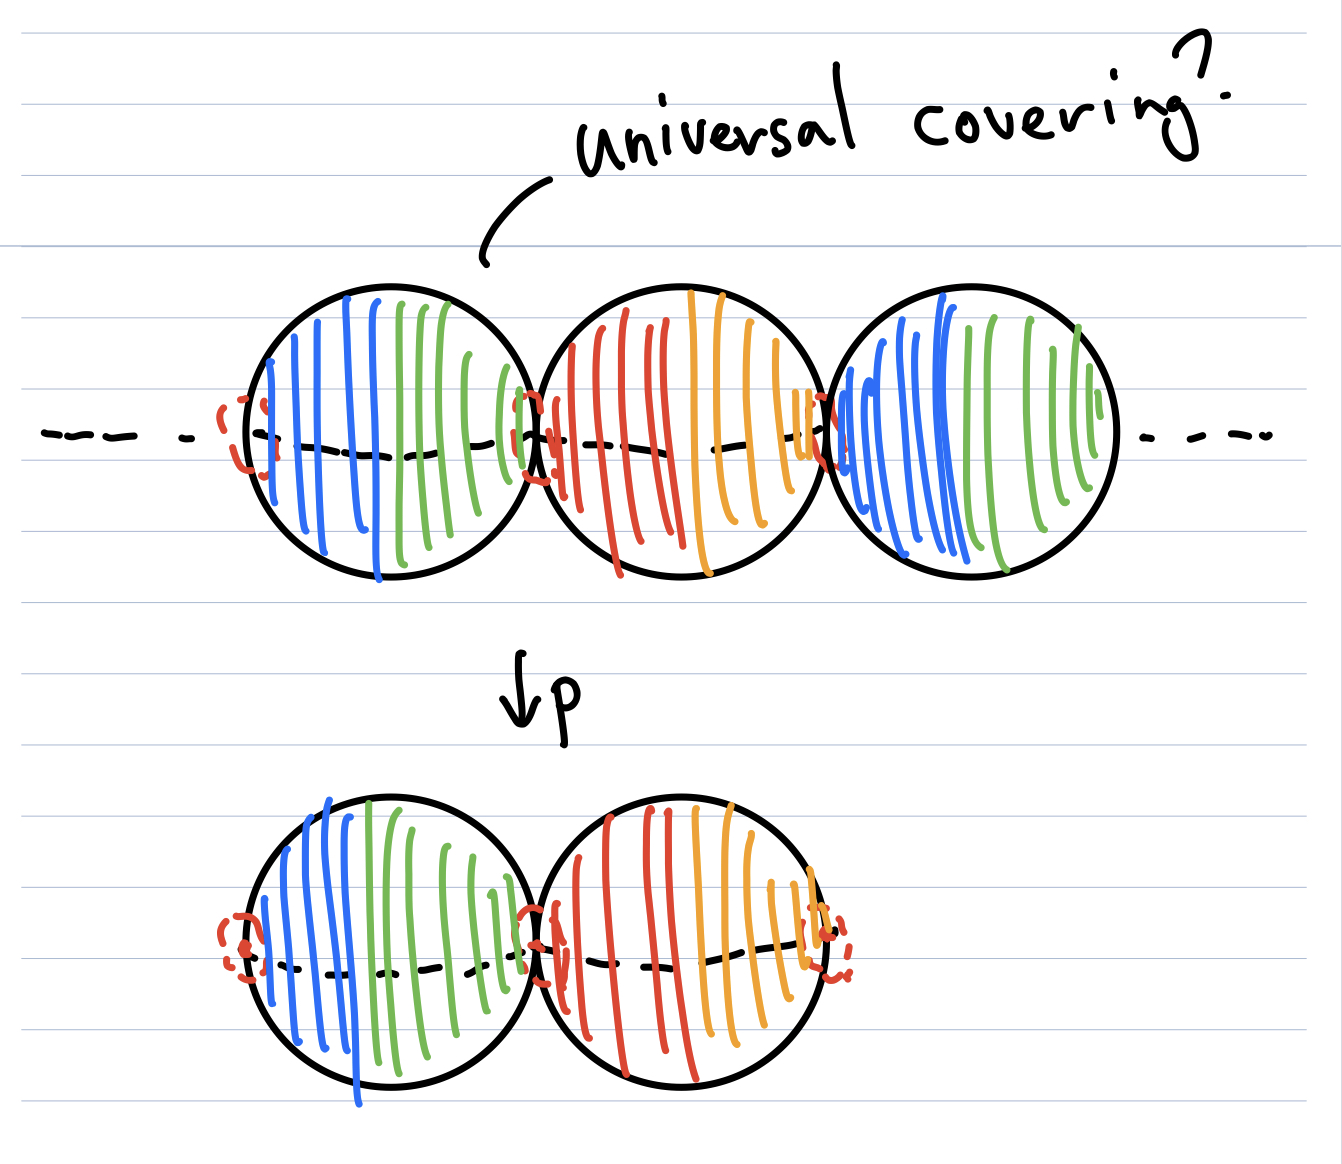 universal covering?
↓p